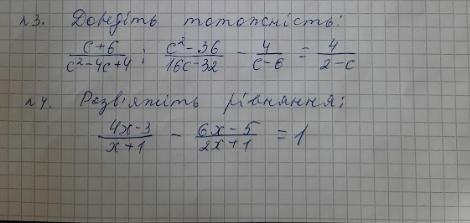 №3. Доведіть тотожність:
(c+6)/(c²-4c+4) : (c²-36)/(16c-32) - 4/(c-6) = 4/(2-c)
№4. Розв'яжіть рівняння:
(4x-3)/(x+1) - (6x-5)/(2x+1) = 1